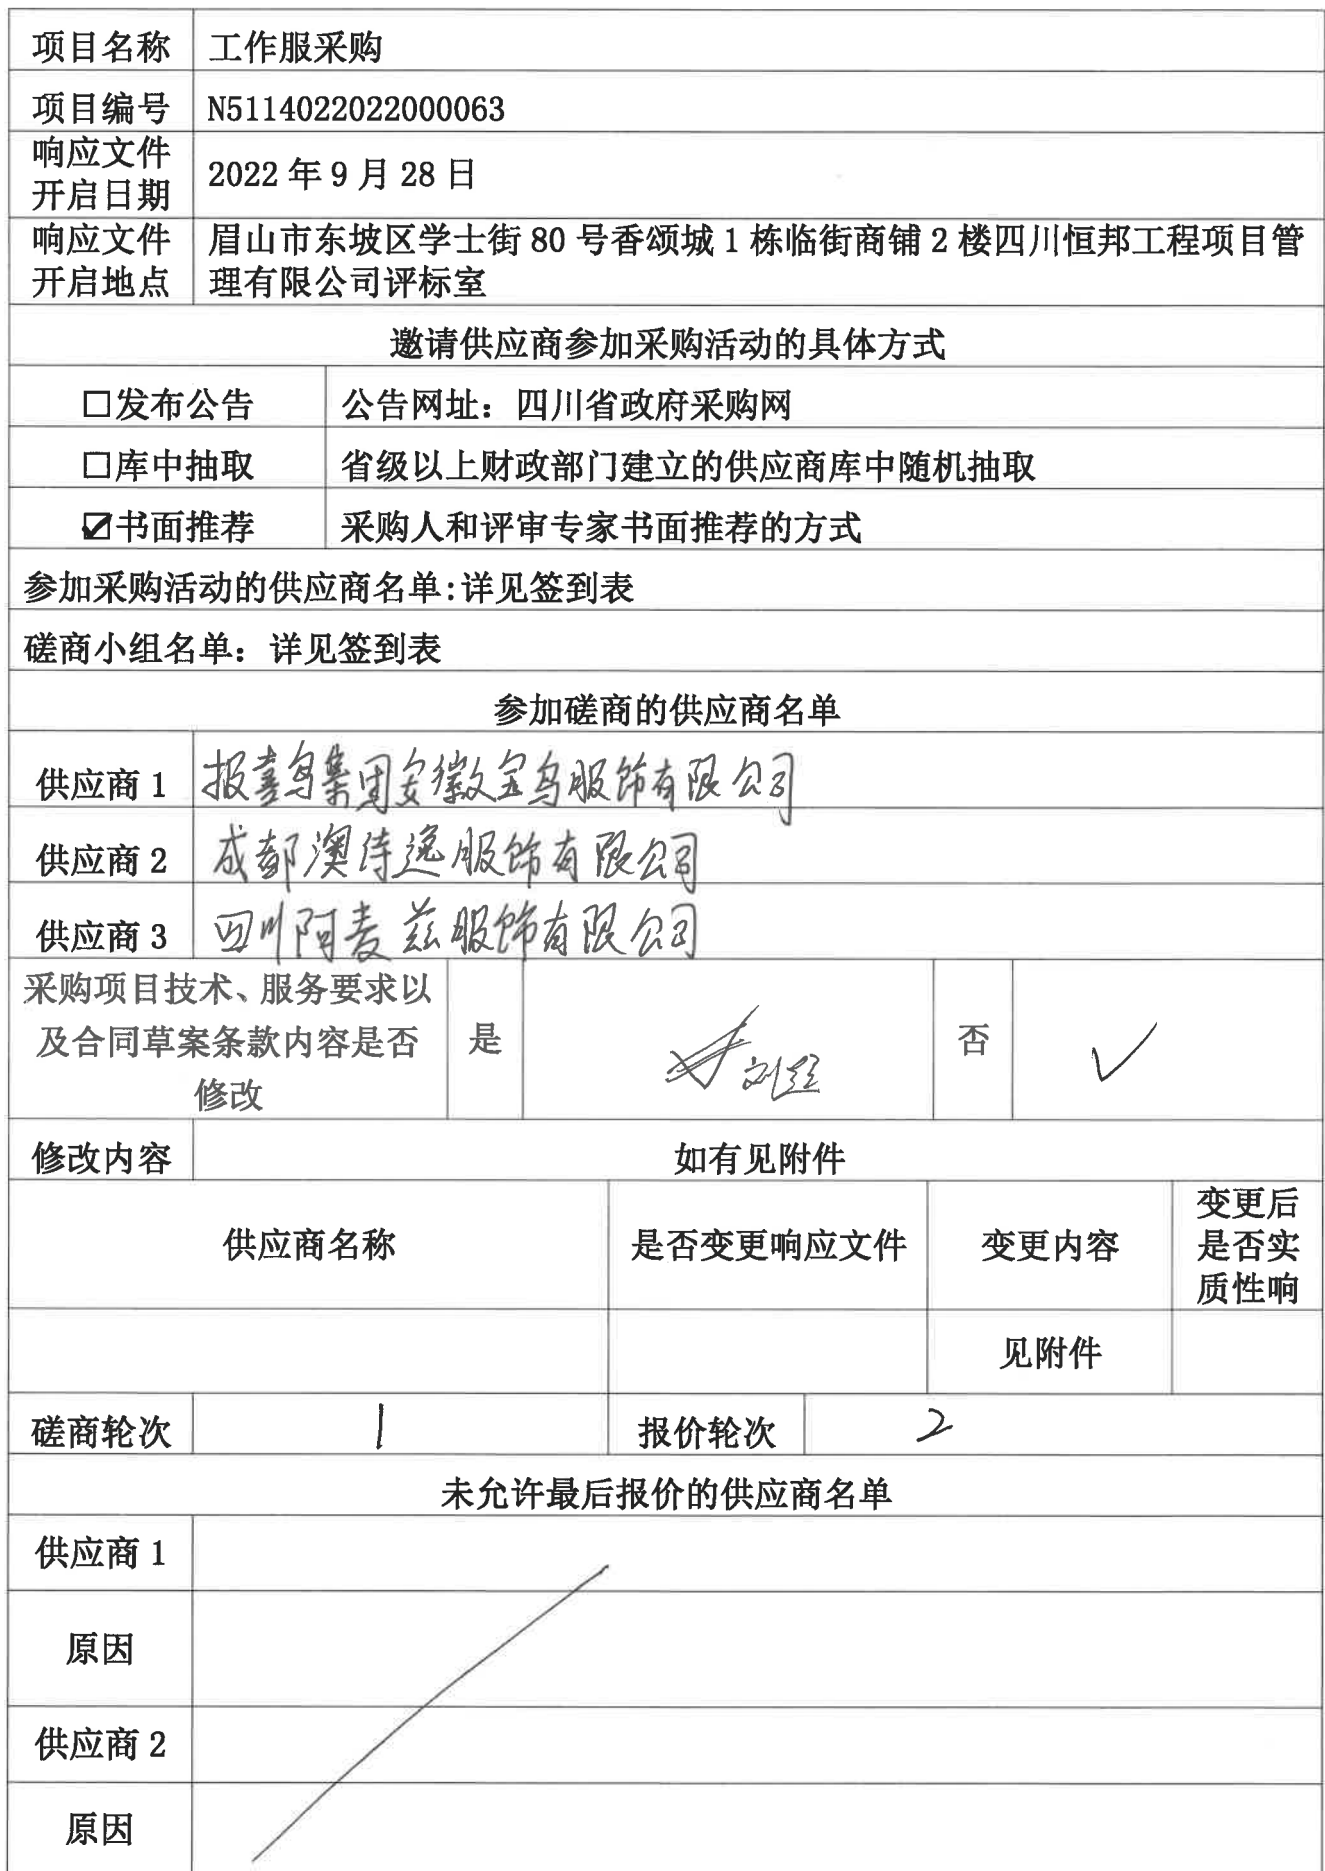 项目名称 工作服采购
项目编号 N5114022022000063
响应文件
开启日期 2022 年 9 月 28 日
响应文件 眉山市东坡区学士街 80 号香颂城 1 栋临街商铺 2 楼四川恒邦工程项目管
开启地点 理有限公司评标室
邀请供应商参加采购活动的具体方式
☐发布公告 公告网址：四川省政府采购网
☐库中抽取 省级以上财政部门建立的供应商库中随机抽取
☑书面推荐 采购人和评审专家书面推荐的方式
参加采购活动的供应商名单:详见签到表
磋商小组名单：详见签到表
参加磋商的供应商名单
供应商 1 报喜鸟集团安徽宝鸟服饰有限公司
供应商 2 成都澳诗逸服饰有限公司
供应商 3 四川阿麦兹服饰有限公司
采购项目技术、服务要求以
及合同草案条款内容是否 是 否 ✓
修改
修改内容 如有见附件
供应商名称 是否变更响应文件 变更内容 变更后
是否实
质性响
见附件
磋商轮次 1 报价轮次 2
未允许最后报价的供应商名单
供应商 1
原因
供应商 2
原因